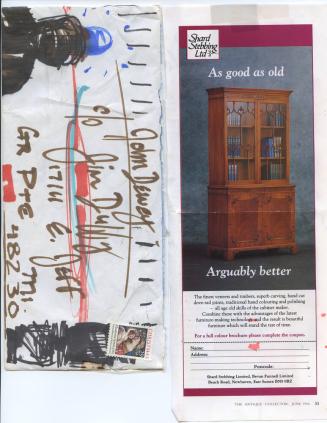 John Dewey
c/o Jim Duffy
17141 E. Jeff
GR PTE MI.
48230
Shard
Stebbing
Ltd
As good as old
Arguably better
The finest veneers and timbers, superb carving, hand cut
dove-tail joints, traditional hand colouring and polishing
– all age old skills of the cabinet maker.
Combine these with the advantages of the latest
furniture-making technology and the result is beautiful
furniture which will stand the test of time.
For a full colour brochure please complete the coupon.
Name:
Address:
Postcode:
Shard Stebbing Limited,
Beach Road, Newhaven, East Sussex BN9 0BZ
THE ANTIQUE COLLECTOR, JUNE